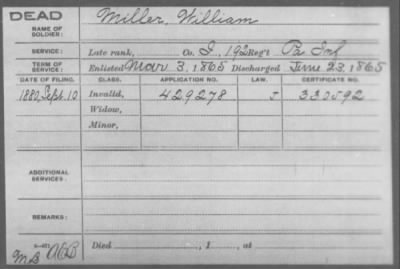 DEAD
NAME OF SOLDIER: Miller, William
SERVICE: Late rank, Co. I, 192 Reg't Pa Inf
TERM OF SERVICE: Enlisted Mar 3, 1865 Discharged June 23, 1865
DATE OF FILING. CLASS. APPLICATION NO. LAW. CERTIFICATE NO.
1880, Sept. 10 Invalid, 429278 J 330592
Widow,
Minor,
ADDITIONAL SERVICES:
REMARKS:
Died , 1 , at